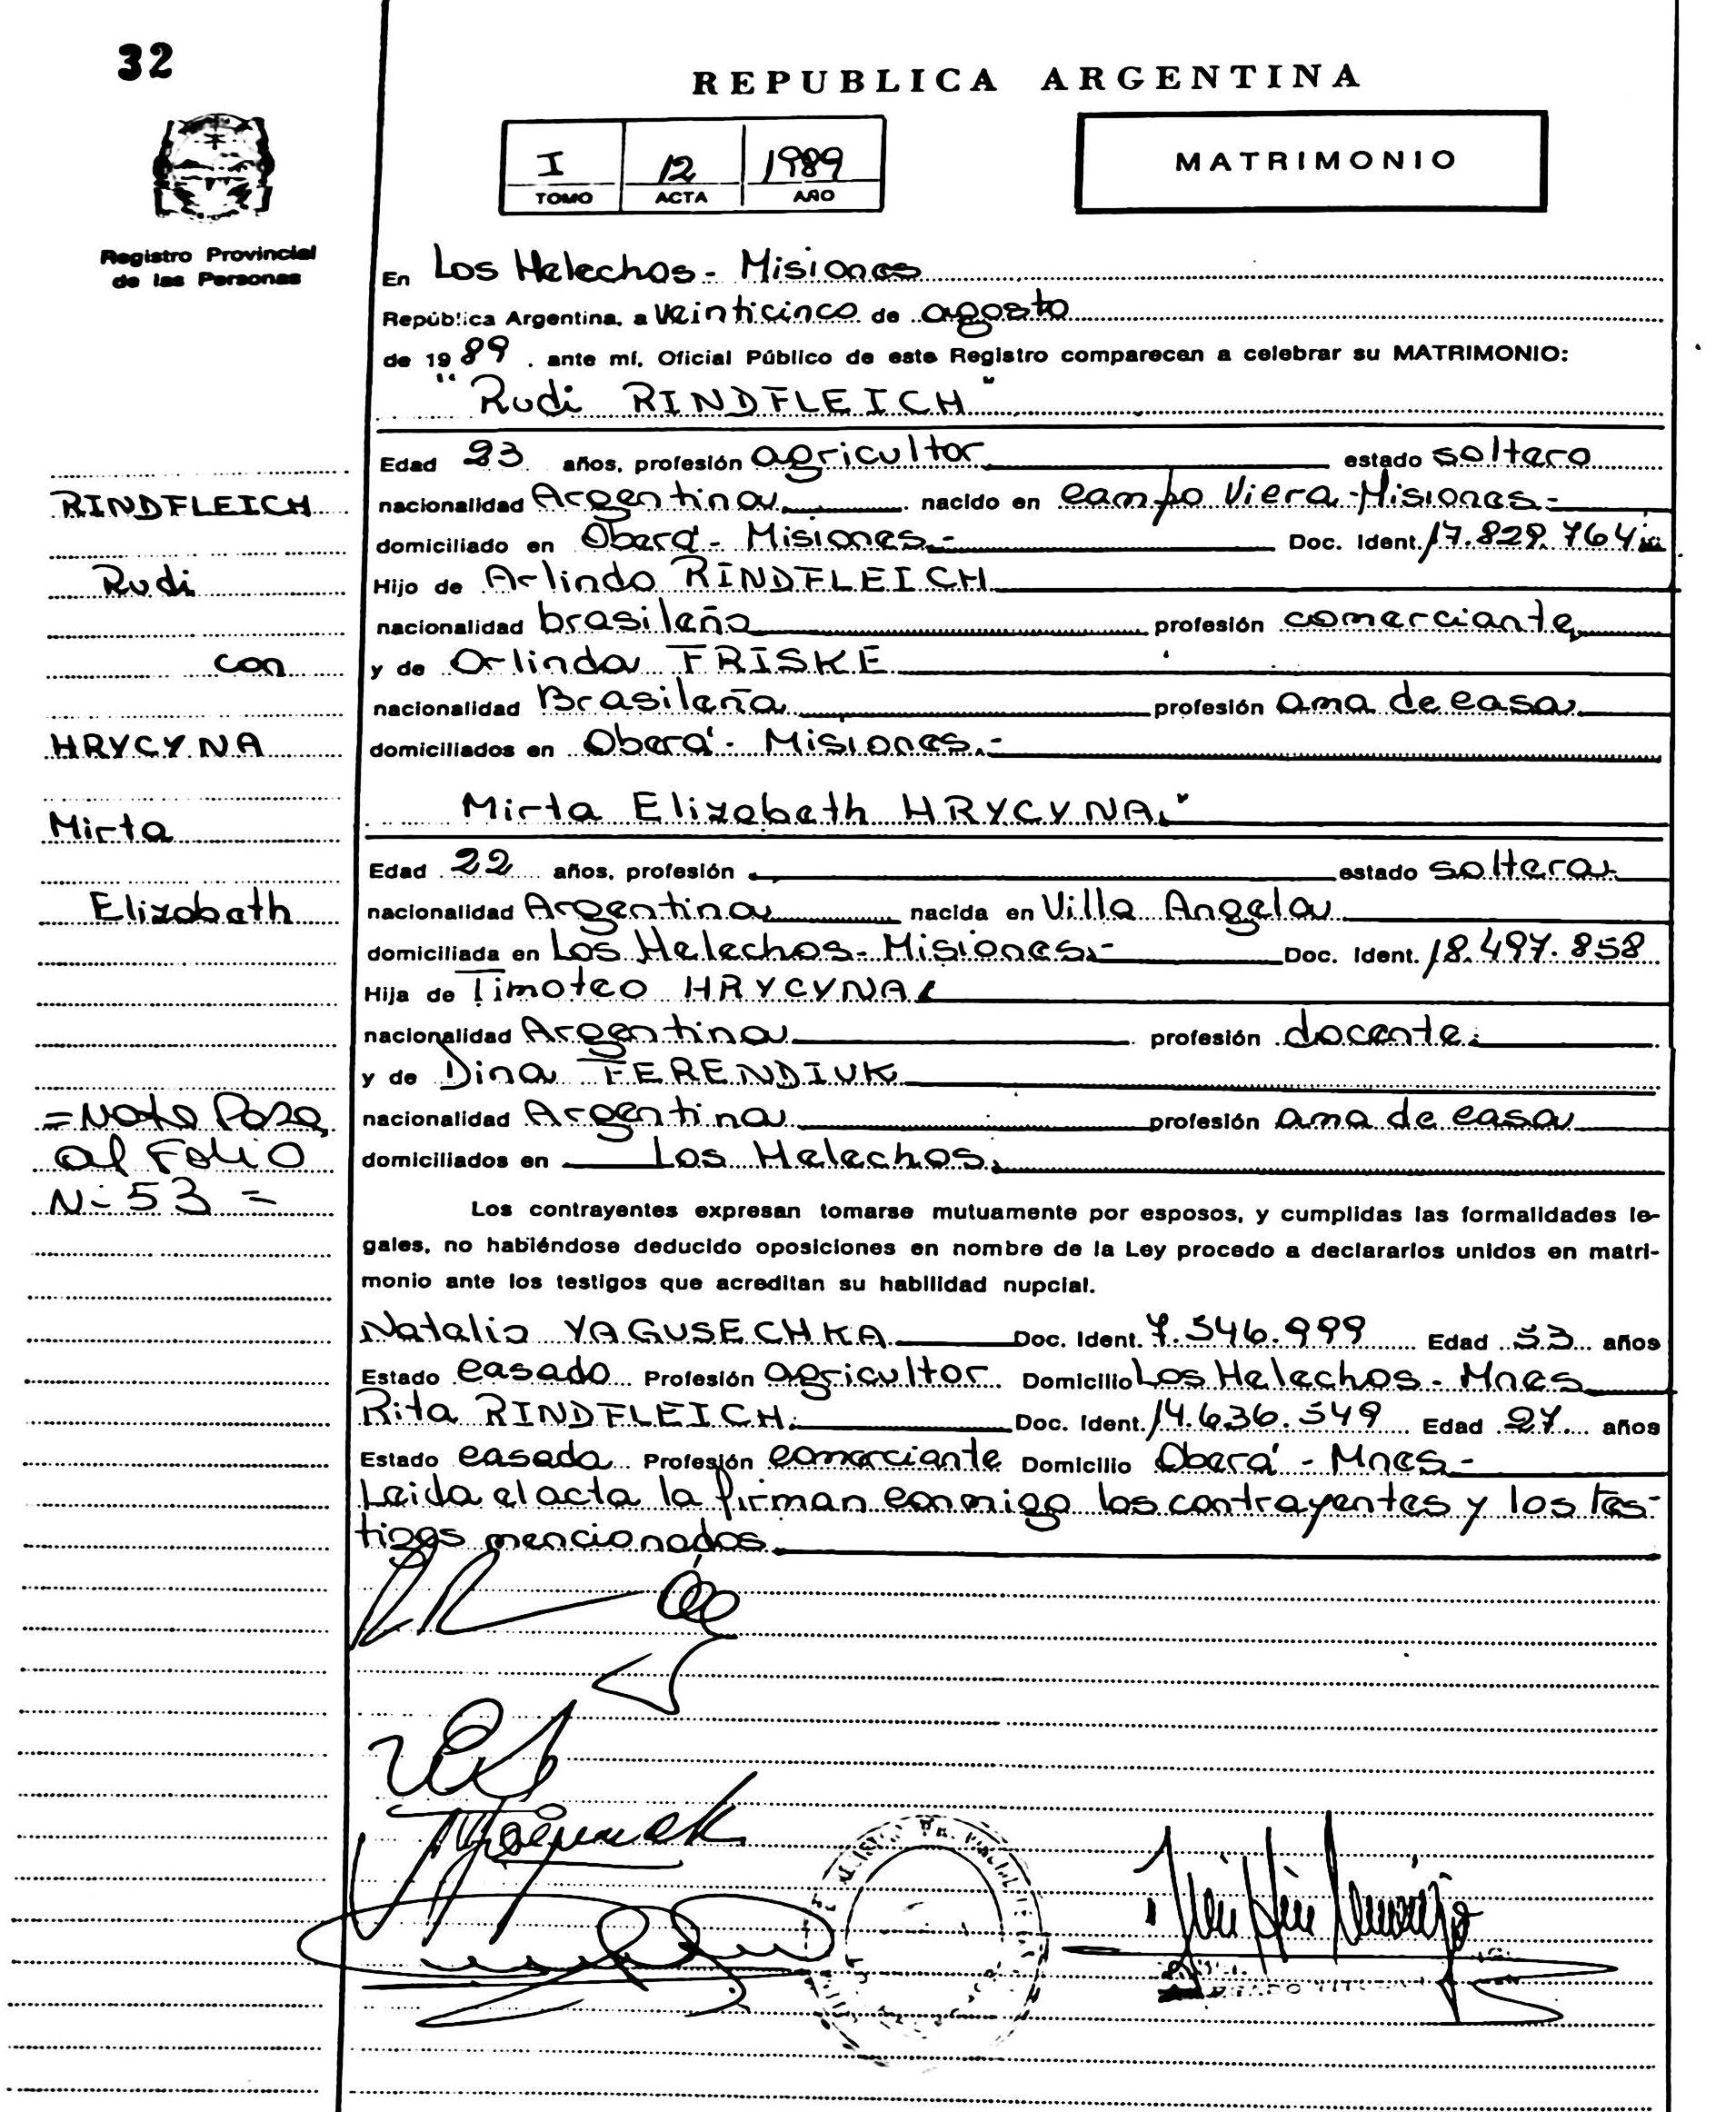 32
REPUBLICA ARGENTINA
I 12 1989
TOMO ACTA AÑO
MATRIMONIO
Registro Provincial
de las Personas
En Los Helechos - Misiones
República Argentina, a veinticinco de agosto
de 19 89 . ante mí, Oficial Público de este Registro comparecen a celebrar su MATRIMONIO:
"Rudi RINDFLEICH"
Edad 23 años, profesión agricultor estado soltero
nacionalidad Argentina nacido en Campo Viera - Misiones -
domiciliado en Oberá - Misiones - Doc. Ident. 17.829.764
Hijo de Arlindo RINDFLEICH
nacionalidad brasileño profesión comerciante
y de Orlinda FRISKE
nacionalidad Brasileña profesión ama de casa
domiciliados en Oberá - Misiones -
Mirta Elizabeth HRYCYNA"
Edad 22 años, profesión estado soltera
nacionalidad Argentina nacida en Villa Angela
domiciliada en Los Helechos - Misiones - Doc. Ident. 18.497.858
Hija de Timoteo HRYCYNA
nacionalidad Argentina profesión docente
y de Dina FERENDIUK
nacionalidad Argentina profesión ama de casa
domiciliados en Los Helechos
Los contrayentes expresan tomarse mutuamente por esposos, y cumplidas las formalidades le-
gales, no habiéndose deducido oposiciones en nombre de la Ley procedo a declararlos unidos en matri-
monio ante los testigos que acreditan su habilidad nupcial.
Natalio YAGUSECHKA Doc. Ident. 7.546.999 Edad 53 años
Estado casado Profesión agricultor Domicilio Los Helechos - Mnes
Rita RINDFLEICH Doc. Ident. 14.636.549 Edad 27 años
Estado casada Profesión comerciante Domicilio Oberá - Mnes -
Leida el acta la firman conmigo los contrayentes y los tes-
tigos mencionados
RINDFLEICH
Rudi
con
HRYCYNA
Mirta
Elizabeth
=Nota Pasa
al Folio
N- 53 =